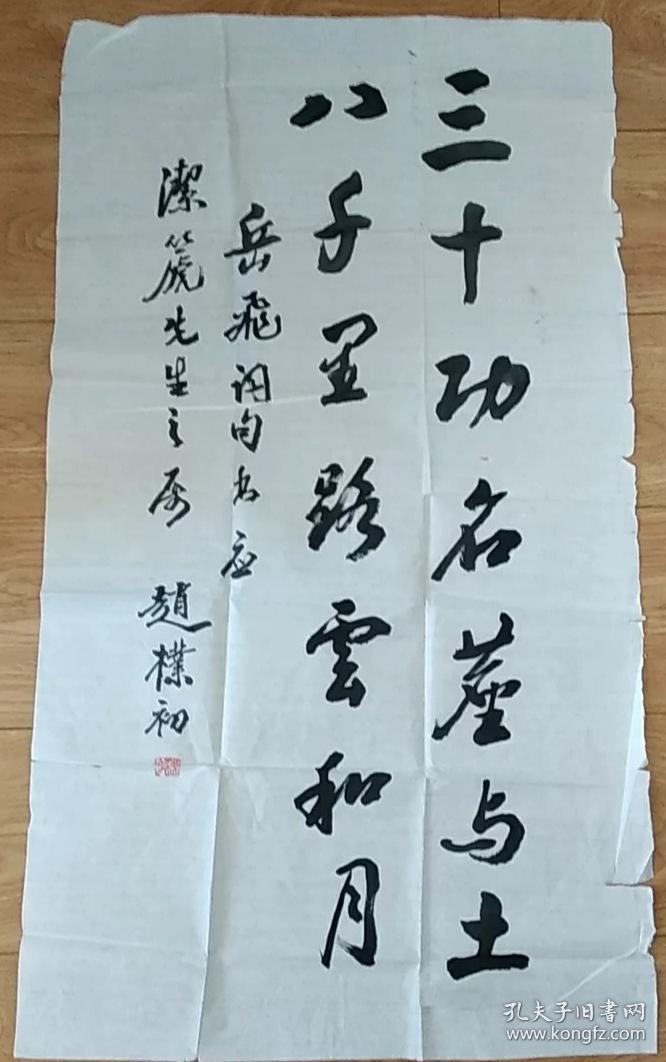 三十功名塵与土
八千里路雲和月
岳飛詞句書应
潔篪先生之属 趙樸初
孔夫子旧书网
www.kongfz.com